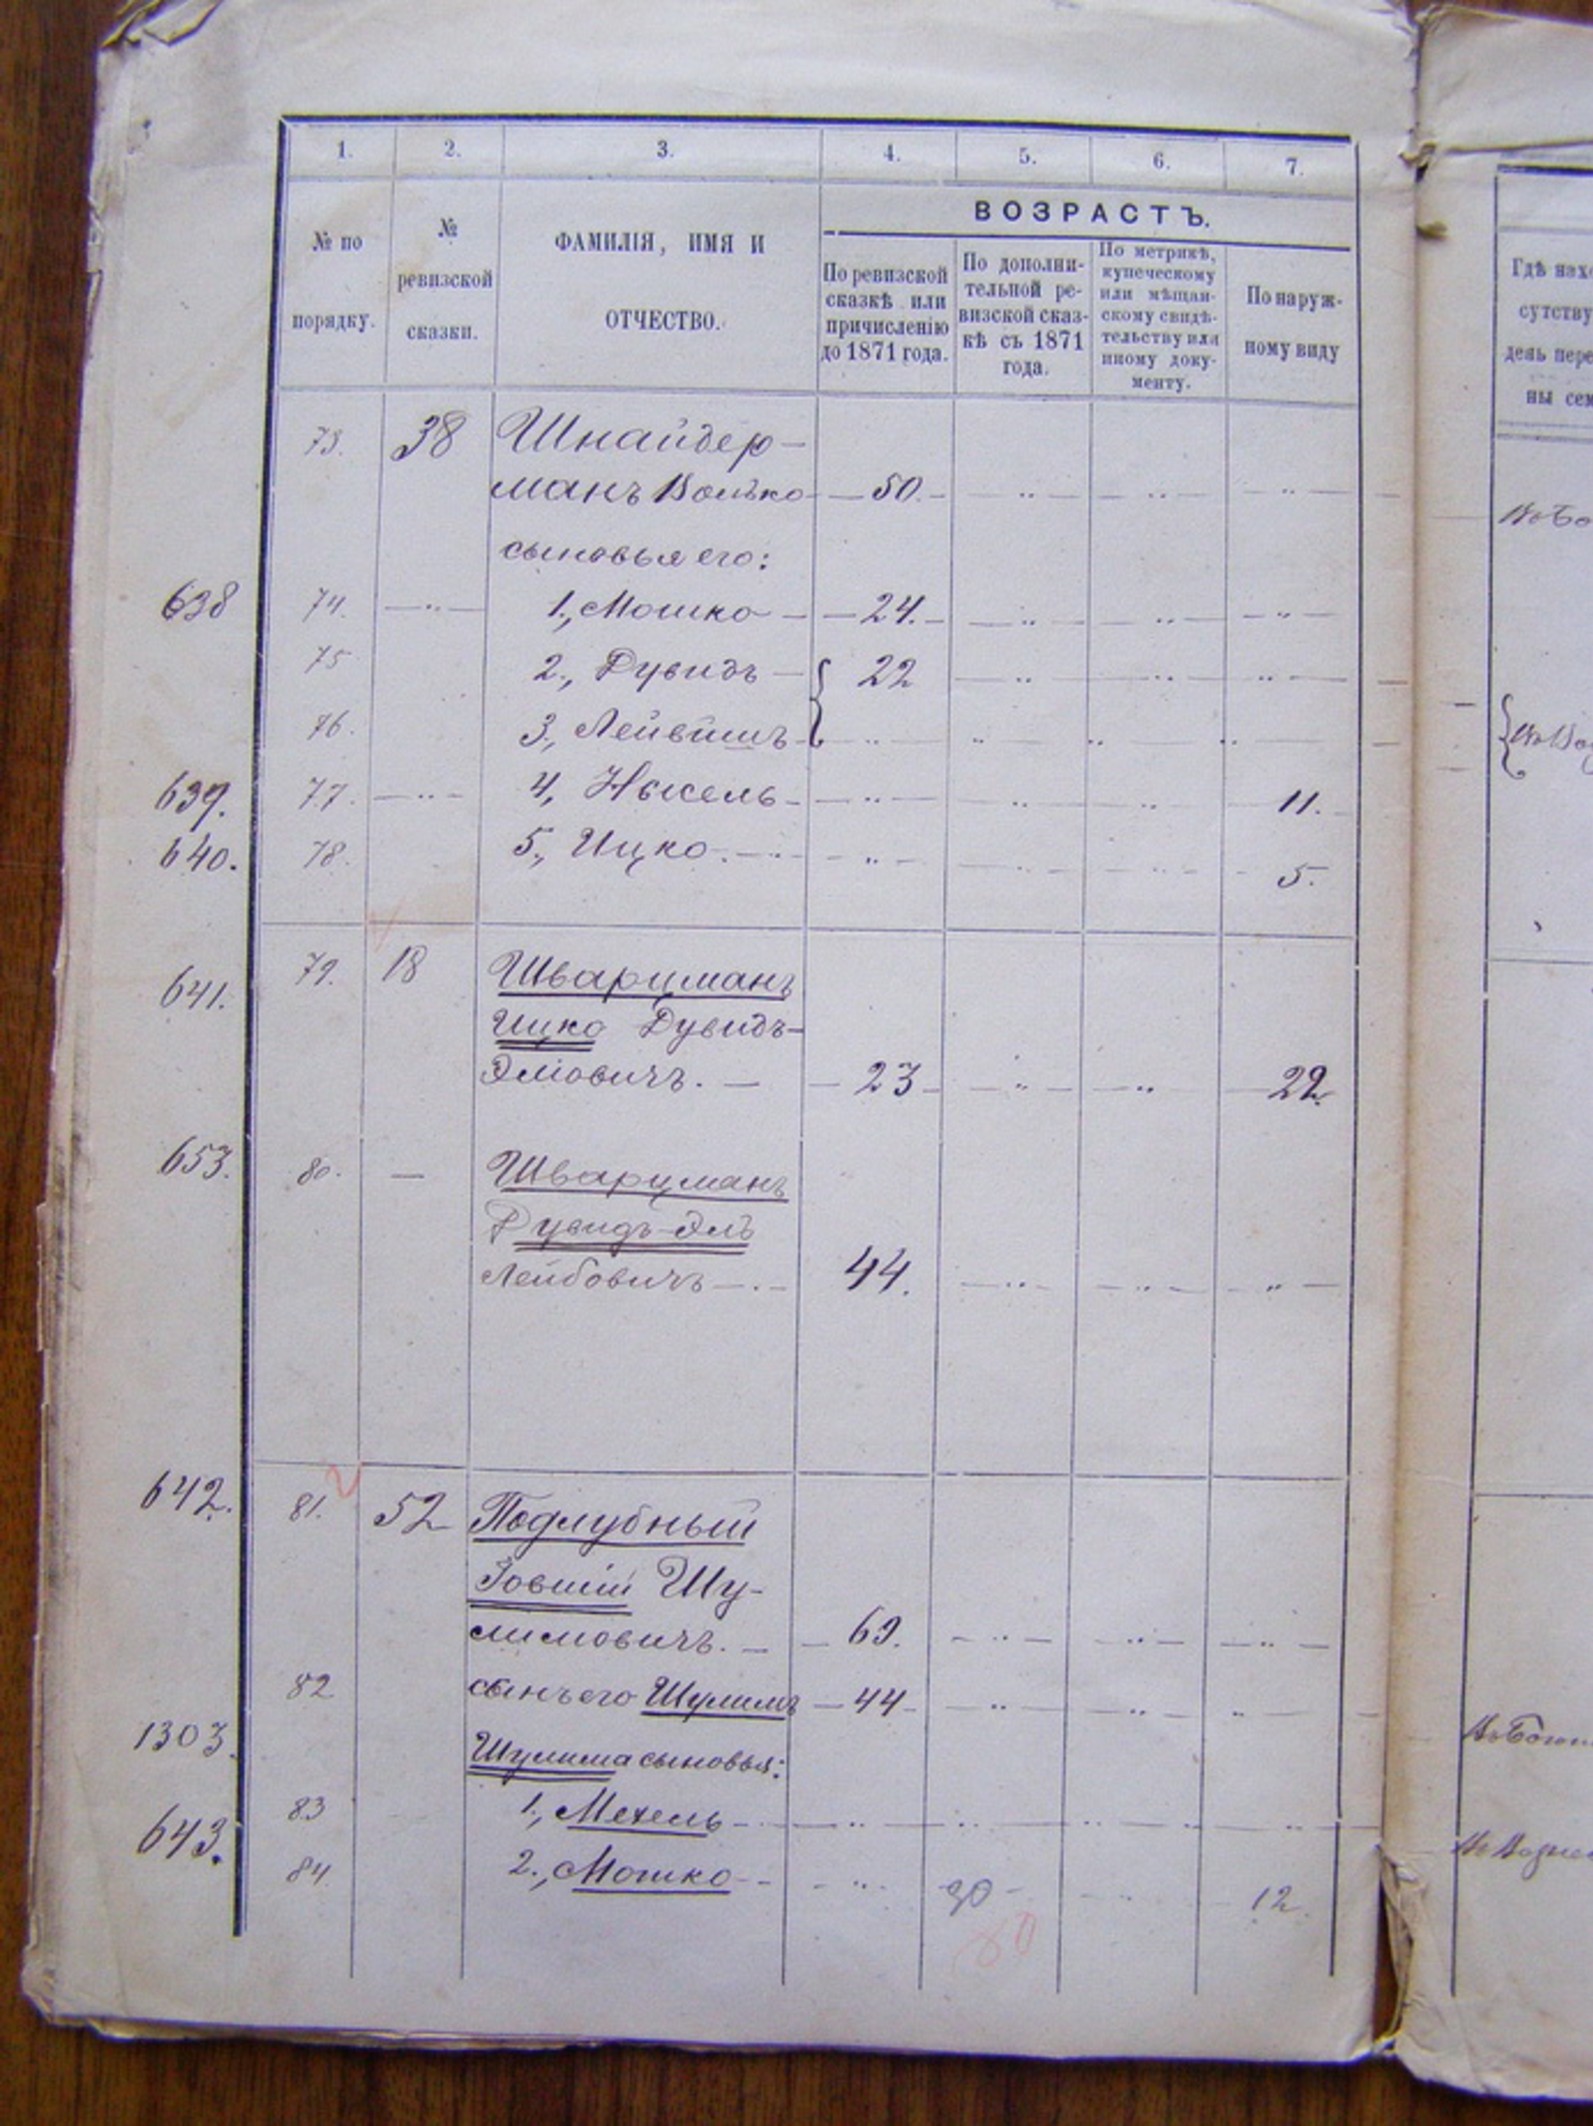 1. 2. 3. 4. 5. 6. 7.
ВОЗРАСТЪ.
№ по
порядку.
№
ревизской
сказки.
ФАМИЛІЯ, ИМЯ И
ОТЧЕСТВО.
По ревизской
сказкѣ или
причисленію
до 1871 года.
По дополни-
тельной ре-
визской сказ-
кѣ съ 1871
года.
По метрикѣ,
купеческому
или мѣщан-
скому свидѣ-
тельству или
иному доку-
менту.
По наруж-
ному виду
73. 38 Шнайдер-
манъ Волько — 50. — „ — „ — „ —
сыновья его:
638 74. — „ — 1., Мошко — 24. — „ — „ — „
75 2., Дувидъ — 22 — „ — „ — „ —
76. 3., Лейвишъ „ „ „ „
639. 77. — „ — 4, Нысель — „ — „ „ 11.
640. 78. 5., Ицко. — „ — „ — „ — 5.
641. 79. 18 Шварцманъ
Ицко Дувидъ-
Эліовичъ. — 23 — „ — „ — 22.
653. 80. — Шварцманъ
Дувидъ-Эль
Лейбовичъ — 44. — „ — „ — „ —
642. 81. 52 Подлубный
Іовшій Шу-
лимовичъ. — 69. — „ — „ — „ —
82 сынъ его Шулимъ — 44 — „ — „ — „
1303. Шулима сыновья:
83 1., Мехель — „ „ „ „
643. 84. 2., Мошко — „ 30 — „ 12.
80
Гдѣ
сутству
день пере
ны сем